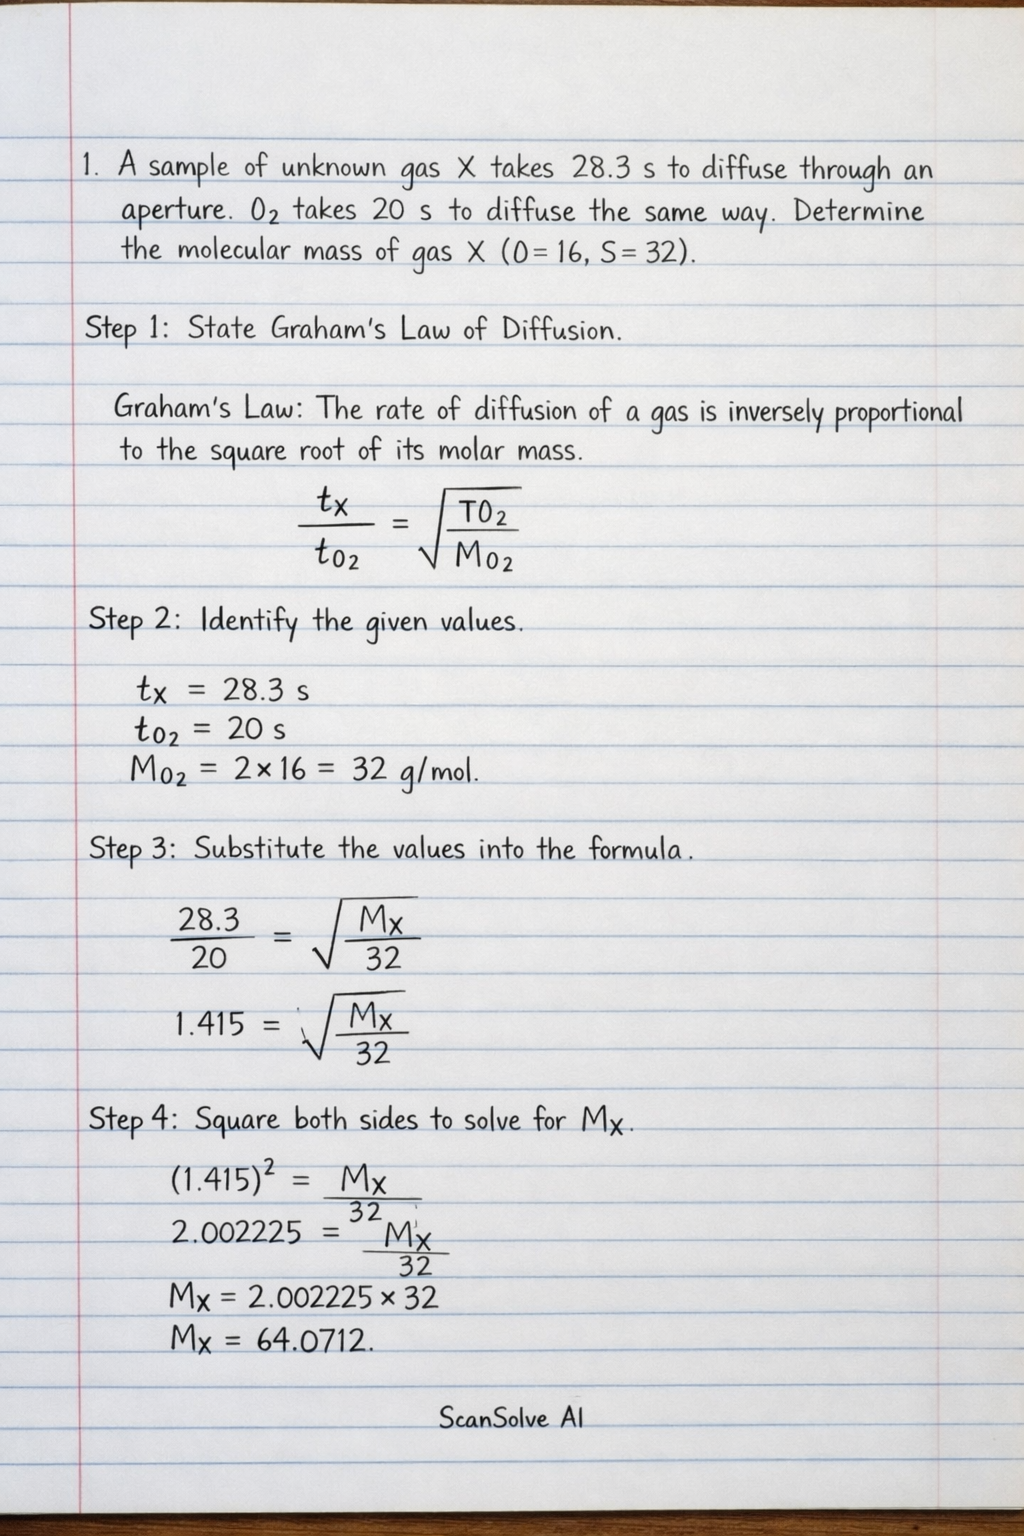 1. A sample of unknown gas X takes 28.3 s to diffuse through an
aperture. O₂ takes 20 s to diffuse the same way. Determine
the molecular mass of gas X (O=16, S=32).
Step 1: State Graham's Law of Diffusion.
Graham's Law: The rate of diffusion of a gas is inversely proportional
to the square root of its molar mass.
tx / to₂ = √(TO₂ / Mo₂)
Step 2: Identify the given values.
tx = 28.3 s
to₂ = 20 s
Mo₂ = 2×16 = 32 g/mol.
Step 3: Substitute the values into the formula.
28.3 / 20 = √(Mx / 32)
1.415 = √(Mx / 32)
Step 4: Square both sides to solve for Mx.
(1.415)² = Mx / 32
2.002225 = Mx / 32
Mx = 2.002225 × 32
Mx = 64.0712.
ScanSolve AI